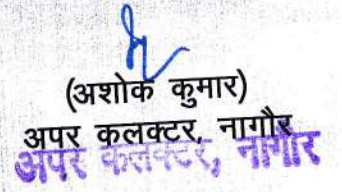 (अशोक कुमार)
अपर कलक्टर, नागौर
अपर कलक्टर, नागौर